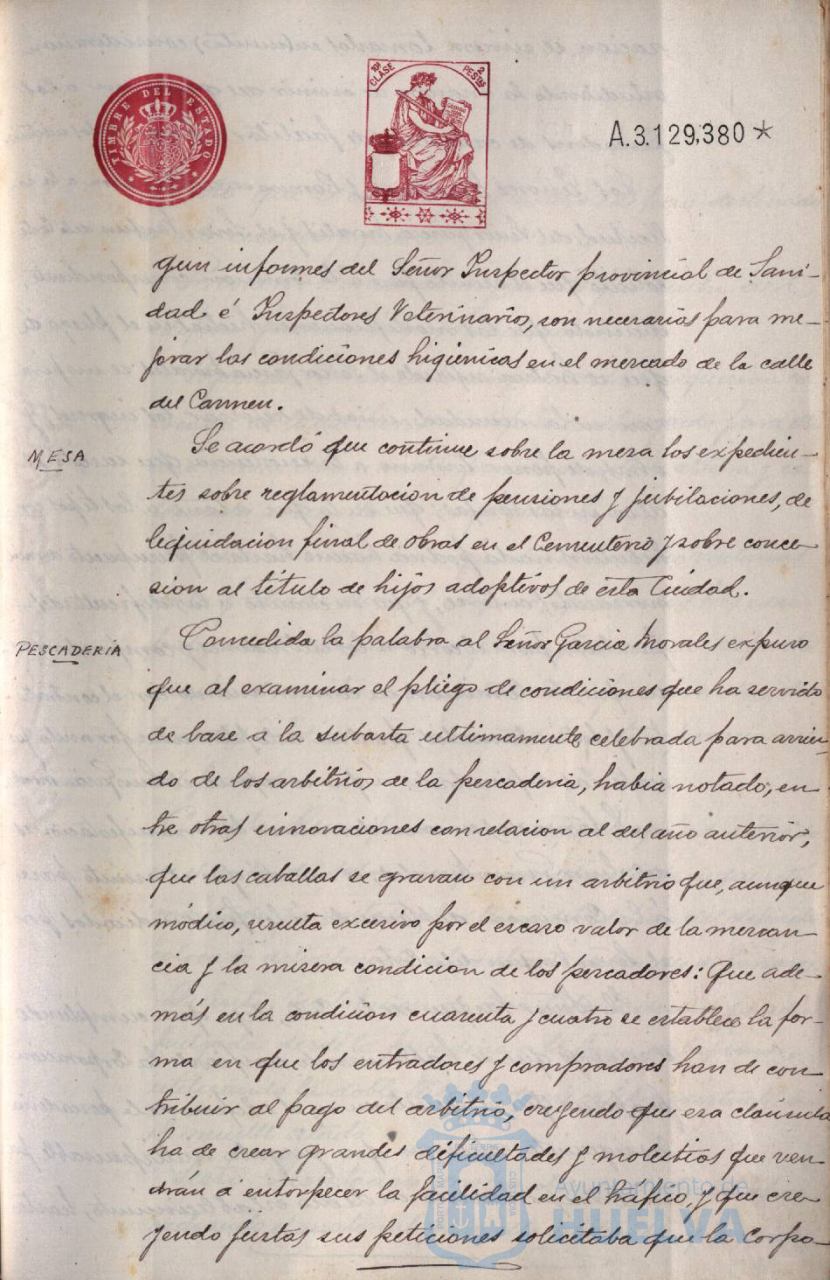 TIMBRE DEL ESTADO
10ª CLASE
2 PESTAS
A.3.129,380 *
gun informes del Señor Inspector provincial de Sani-
dad é Inspectores Veterinarios, son necesarias para me-
jorar las condiciones higiénicas en el mercado de la calle
del Carmen.
MESA
Se acordó que continue sobre la mesa los expedien-
tes sobre reglamentacion de pensiones y jubilaciones, de
liquidacion final de obras en el Cementerio y sobre conce-
sion al título de hijos adoptivos de esta Ciudad.
PESCADERÍA
Concedida la palabra al Señor Garcia Morales expuso
que al examinar el pliego de condiciones que ha servido
de base á la subasta ultimamente celebrada para arrien-
do de los arbitrios de la pescaderia, habia notado, en-
tre otras innovaciones con relacion al del año anterior,
que las caballas se gravan con un arbitrio que, aunque
módico, resulta excesivo por el escaso valor de la mercan-
cia y la misera condicion de los pescadores: Que ade-
más en la condicion cuarenta y cuatro se establece la for-
ma en que los entradores y compradores han de con-
tribuir al pago del arbitrio, creyendo que esa cláusula
ha de crear grandes dificultades y molestias que ven-
drán á entorpecer la facilidad en el tráfico y que cre-
yendo justas sus peticiones solicitaba que la Corpo-
Ayuntamiento de
HUELVA